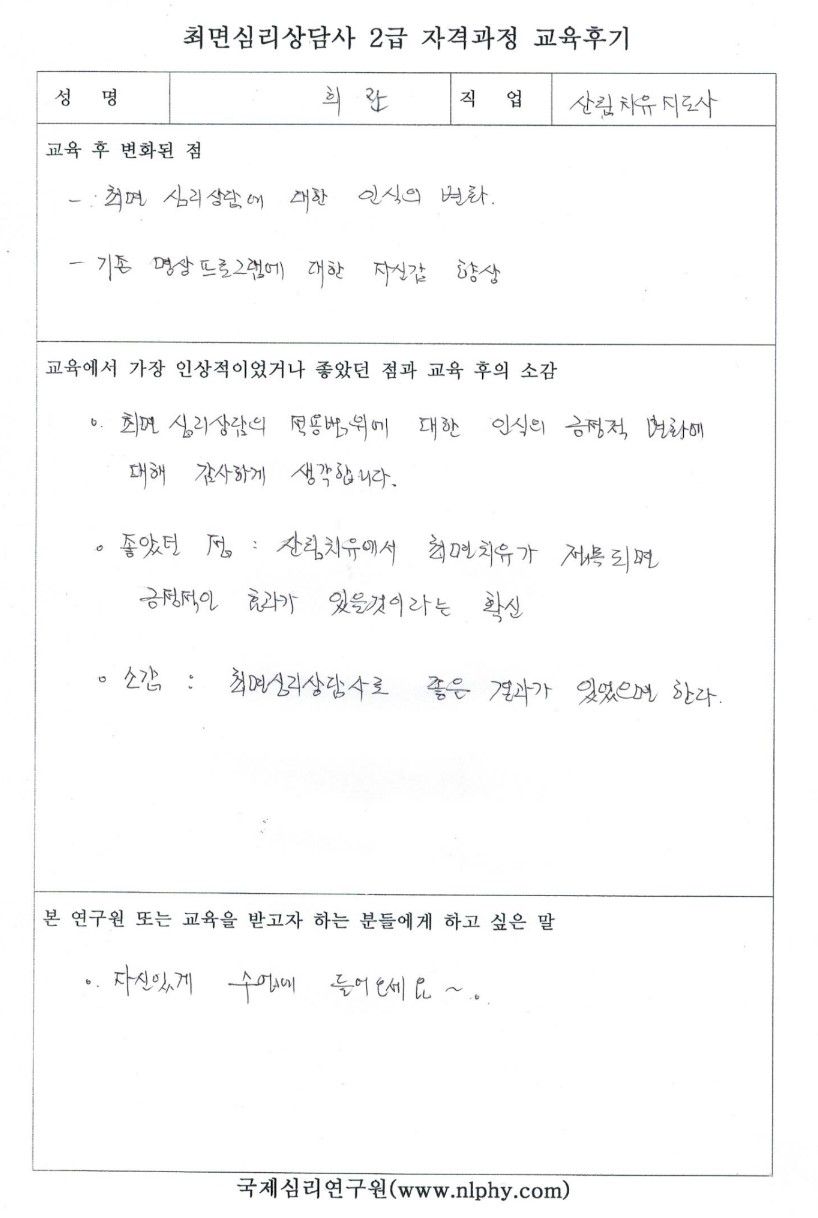 최면심리상담사 2급 자격과정 교육후기
성 명 희란 직 업 산림치유지도사
교육 후 변화된 점
- 최면 심리상담에 대한 인식의 변화.
- 기존 명상프로그램에 대한 자신감 향상
교육에서 가장 인상적이었거나 좋았던 점과 교육 후의 소감
o. 최면 심리상담의 적용범위에 대한 인식의 긍정적 변화에
대해 감사하게 생각합니다.
o 좋았던 점 : 산림치유에서 최면치유가 접목되면
긍정적인 효과가 있을것이라는 확신
o 소감 : 최면심리상담사로 좋은 결과가 있었으면 한다.
본 연구원 또는 교육을 받고자 하는 분들에게 하고 싶은 말
o. 자신있게 수업에 들어오세요~.
국제심리연구원(www.nlphy.com)